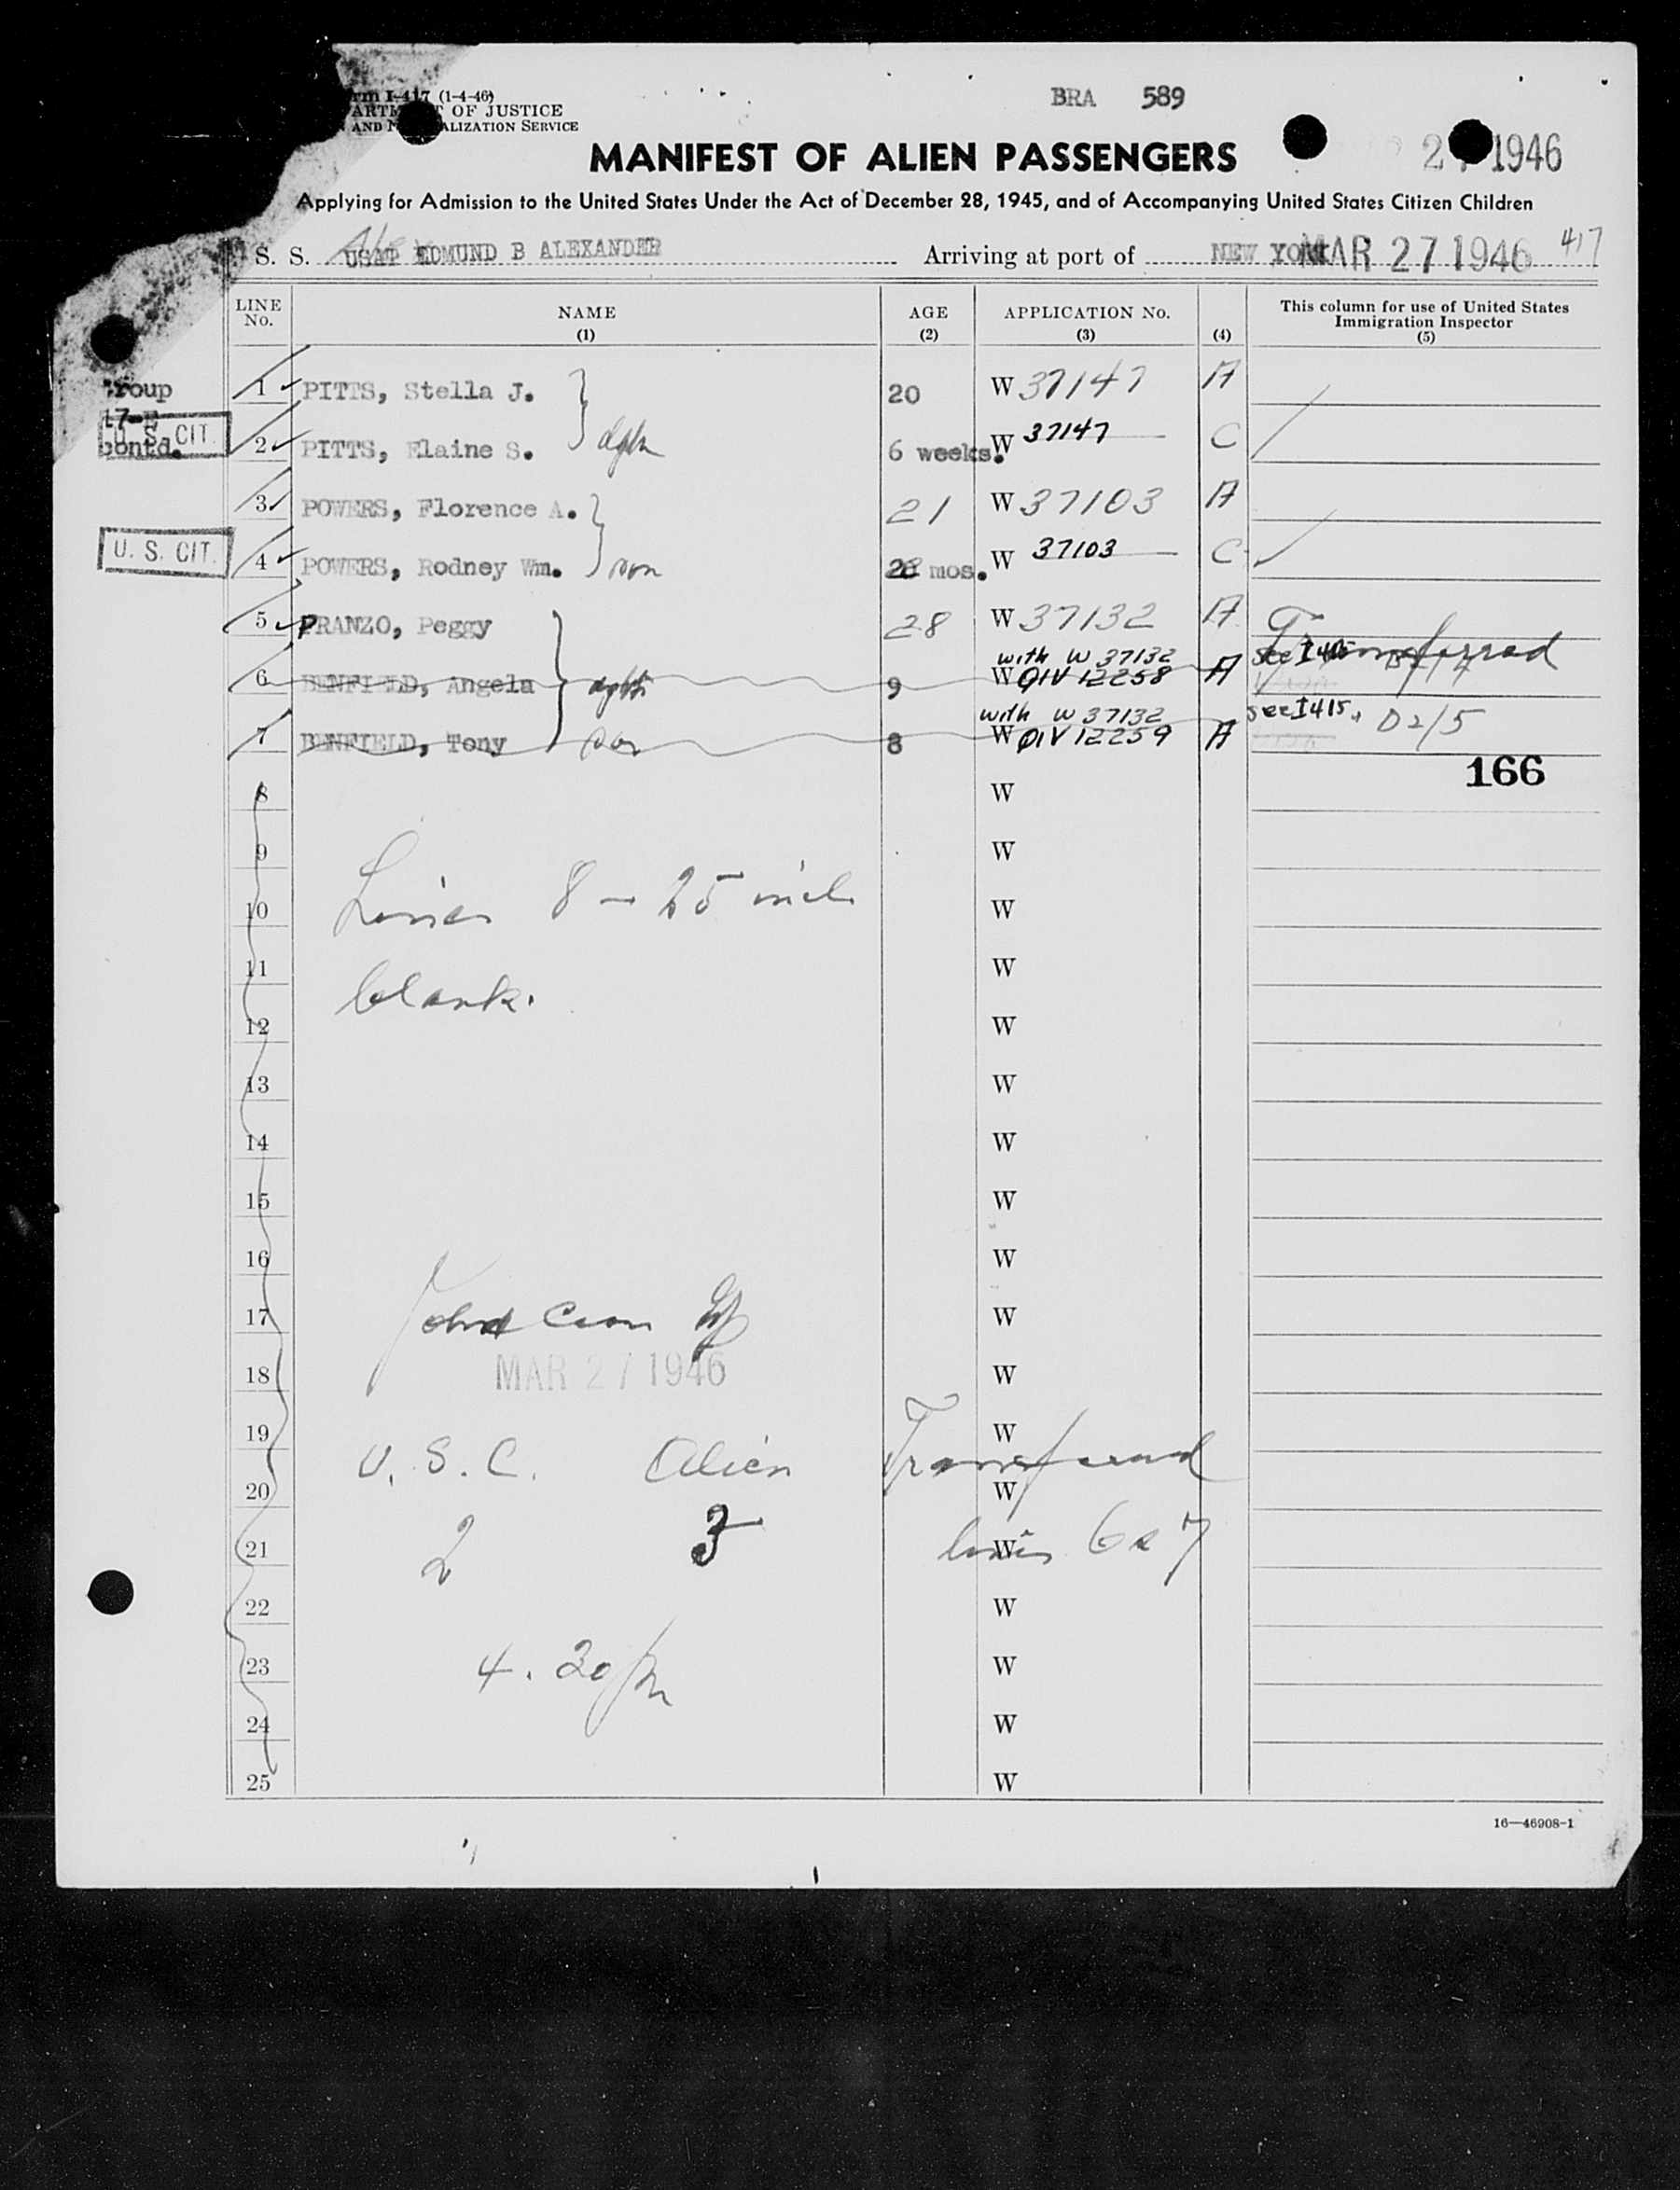 BRA 589
(1-4-46)
OF JUSTICE
AND ALIZATION SERVICE
MANIFEST OF ALIEN PASSENGERS
2 1946
Applying for Admission to the United States Under the Act of December 28, 1945, and of Accompanying United States Citizen Children
S. S. USAT EDMUND B ALEXANDER Arriving at port of NEW YORK MAR 27 1946 417
LINE No. NAME (1) AGE (2) APPLICATION No. (3) (4) This column for use of United States Immigration Inspector (5)
roup
17-E
contd.
U. S. CIT.
1 PITTS, Stella J. 20 W 37147 A
2 PITTS, Elaine S. dghtr 6 weeks. W 37147 C
3 POWERS, Florence A. 21 W 37103 A
U. S. CIT.
4 POWERS, Rodney Wm. son mos. W 37103 C
5 PRANZO, Peggy 28 W 37132 A Transferred
with W 37132
6 BENFIELD, Angela 9 W QIV 12258 A see I 415
with W 37132
7 BENFIELD, Tony son 8 W QIV 12259 A see I 415. D2/5
166
8 W
9 W
Lines 8 - 25 incl.
10 W
11 W
blank.
12 W
13 W
14 W
15 W
16 W
17 W
MAR 27 1946
18 W
19 W
U. S. C. Alien Transferred
20 W
2 3 lines 6 & 7
21 W
22 W
4.30 pm
23 W
24 W
25 W
16—46908-1